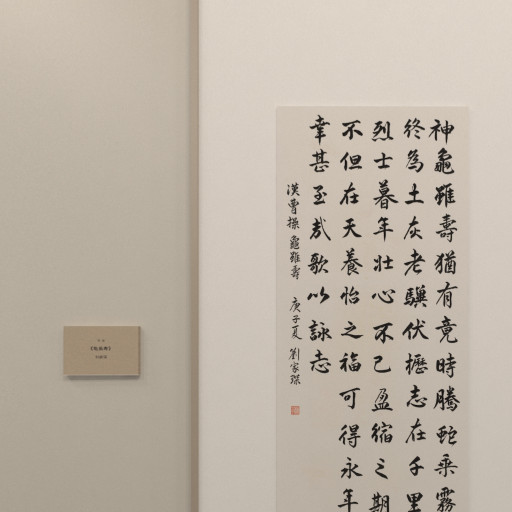 神龜雖壽猶有竟時騰蛇乘霧
終為土灰老驥伏櫪志在千里
烈士暮年壯心不已盈縮之期
不但在天養怡之福可得永年
幸甚至哉歌以詠志
漢曹操 龜雖壽 庚子夏 劉家琛